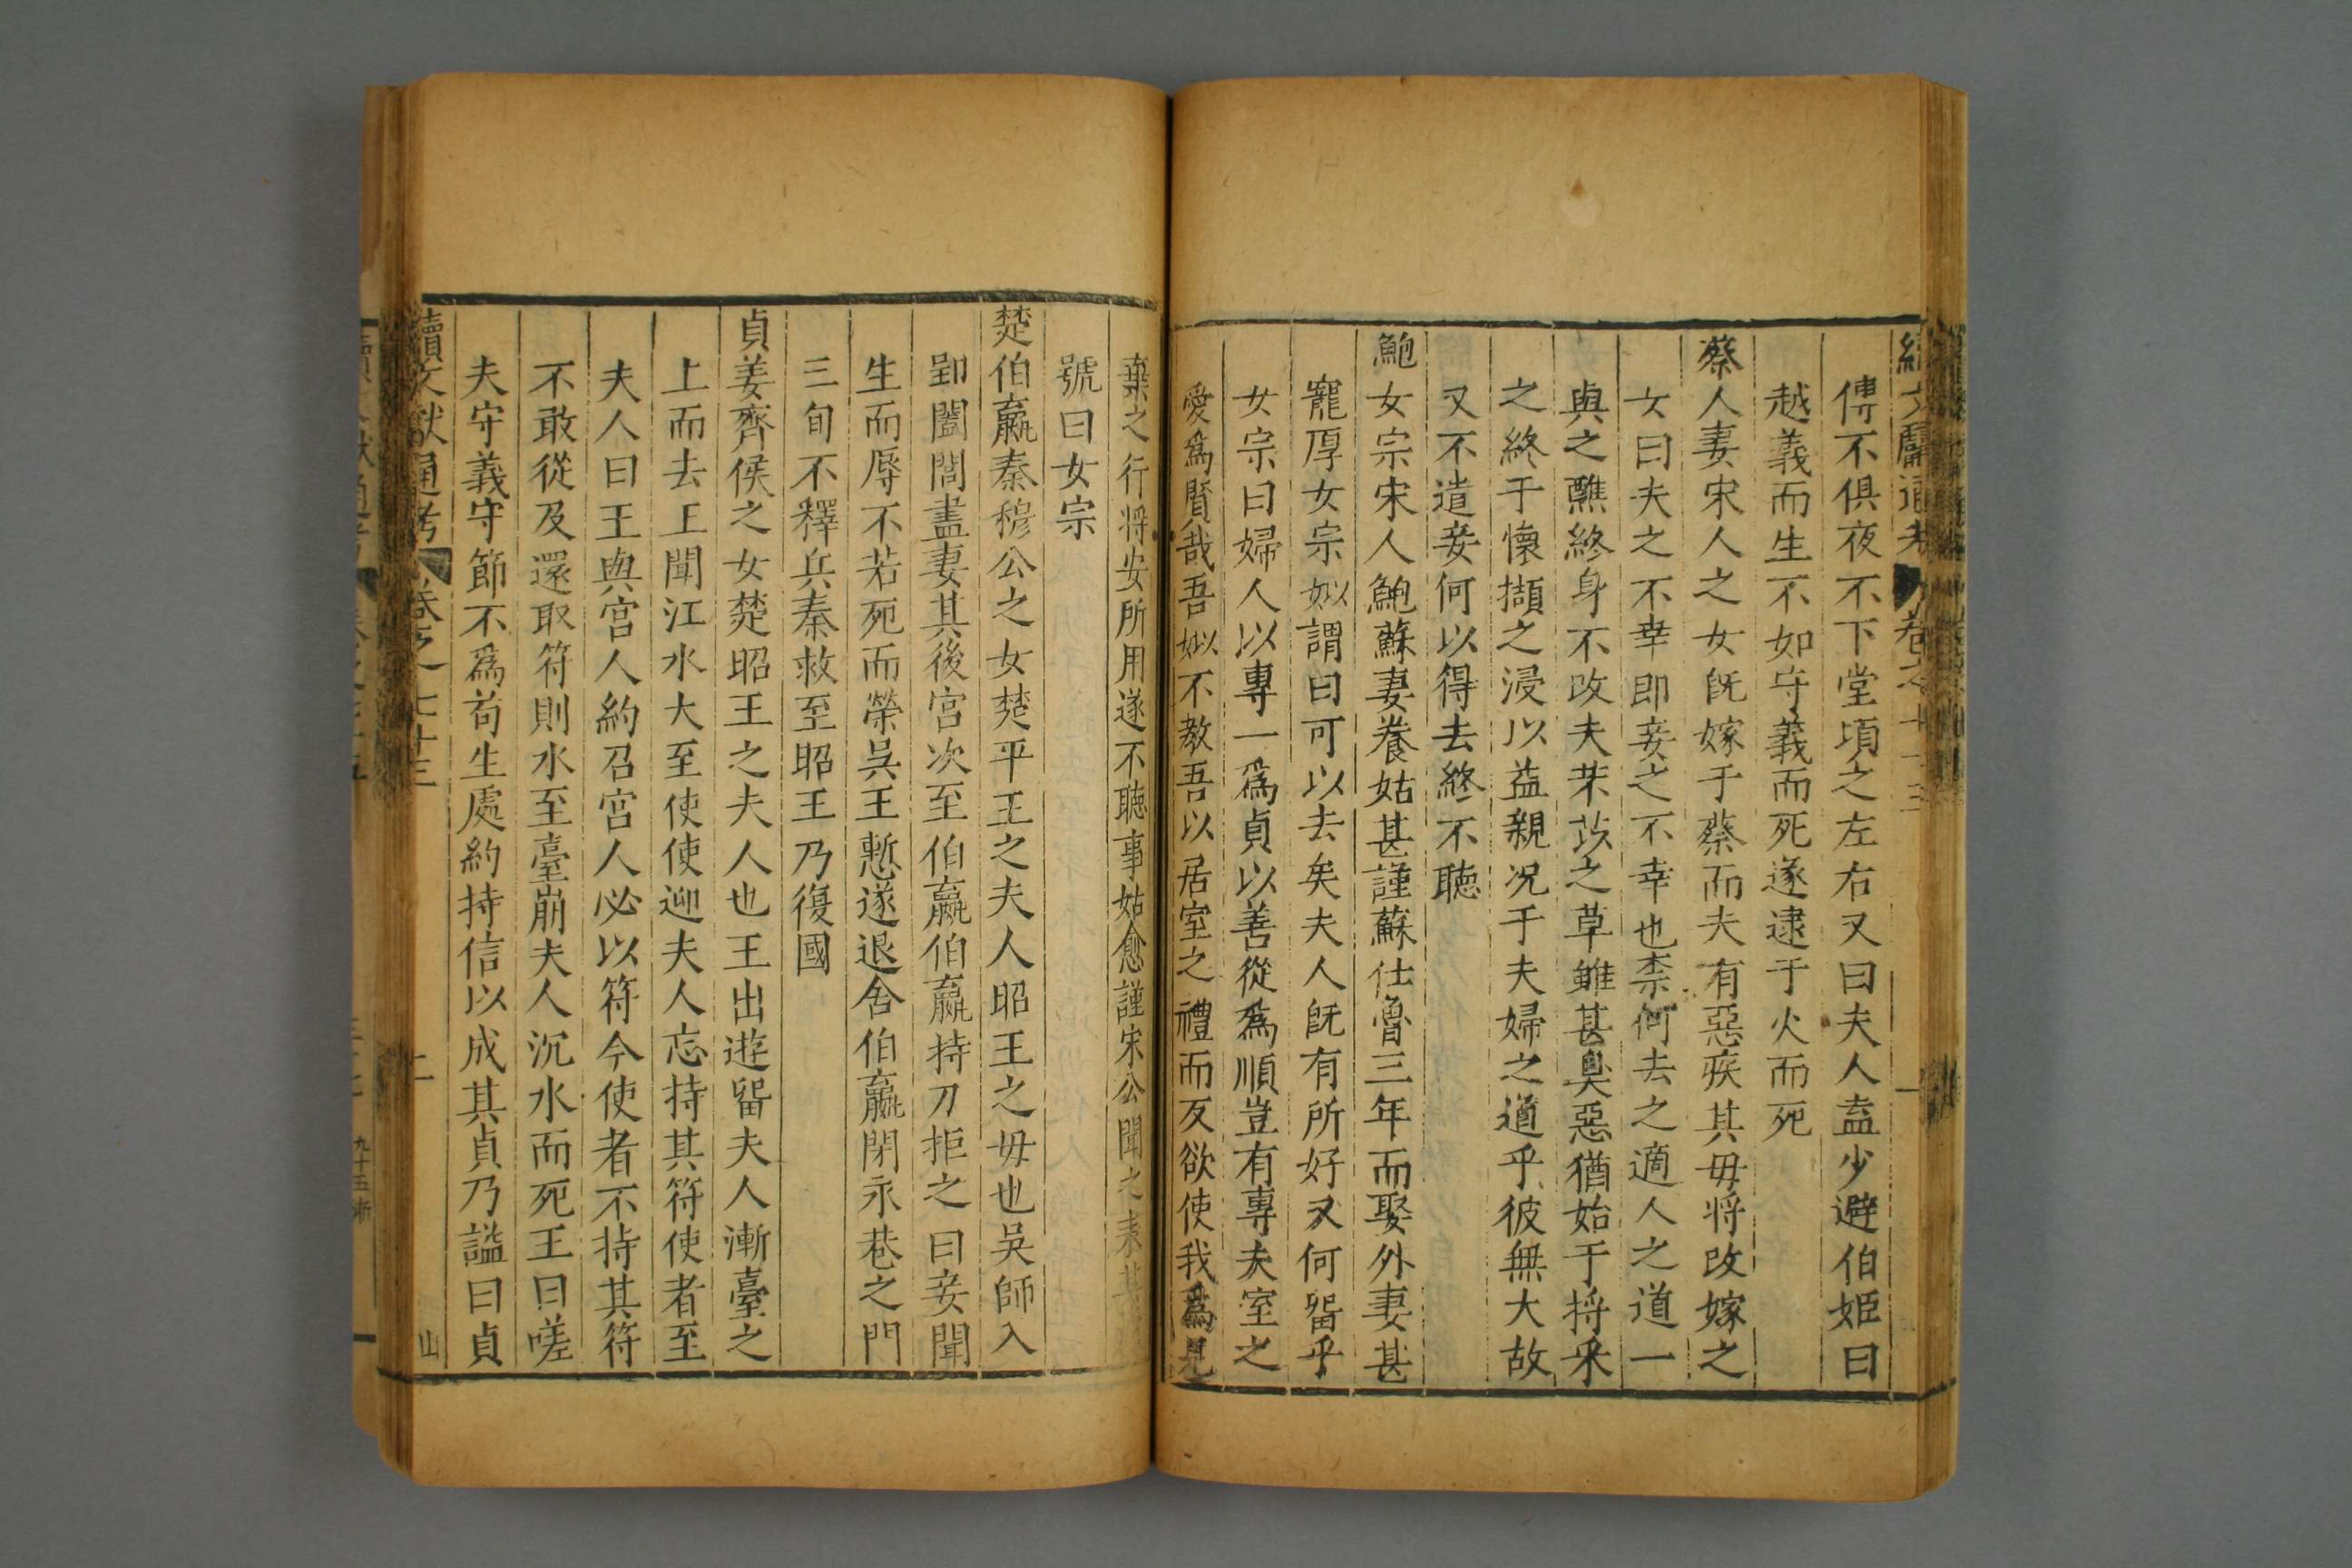 續文獻通考 卷之七十三 一
傅不俱夜不下堂頃之左右又曰夫人盍少避伯姬曰
越義而生不如守義而死遂逮于火而死
蔡人妻宋人之女旣嫁于蔡而夫有惡疾其毋將改嫁之
女曰夫之不幸即妾之不幸也柰何去之適人之道一
與之醮終身不改夫芣苡之草雖甚臭惡猶始于捋采
之終于懷擷之浸以益親况于夫婦之道乎彼無大故
又不遣妾何以得去終不聽
鮑女宗宋人鮑蘇妻養姑甚謹蘇仕魯三年而娶外妻甚
寵厚女宗姒謂曰可以去矣夫人旣有所好又何畱乎
女宗曰婦人以專一爲貞以善從爲順豈有專夫室之
愛爲賢哉吾姒不教吾以居室之禮而反欲使我爲見
棄之行將安所用遂不聽事姑愈謹宋公聞之表其
號曰女宗
楚伯嬴秦穆公之女楚平王之夫人昭王之毋也吳師入
郢闔閭盡妻其後宫次至伯嬴伯嬴持刀拒之曰妾聞
生而辱不若死而榮吳王慙遂退舍伯嬴閉永巷之門
三旬不釋兵秦救至昭王乃復國
貞姜齊侯之女楚昭王之夫人也王出遊畱夫人漸臺之
上而去王聞江水大至使使迎夫人忘持其符使者至
夫人曰王與宫人約召宫人必以符今使者不持其符
不敢從及還取符則水至臺崩夫人沉水而死王曰嗟
夫守義守節不爲苟生處約持信以成其貞乃謚曰貞
續文獻通考 卷之七十三 二 山
九十五